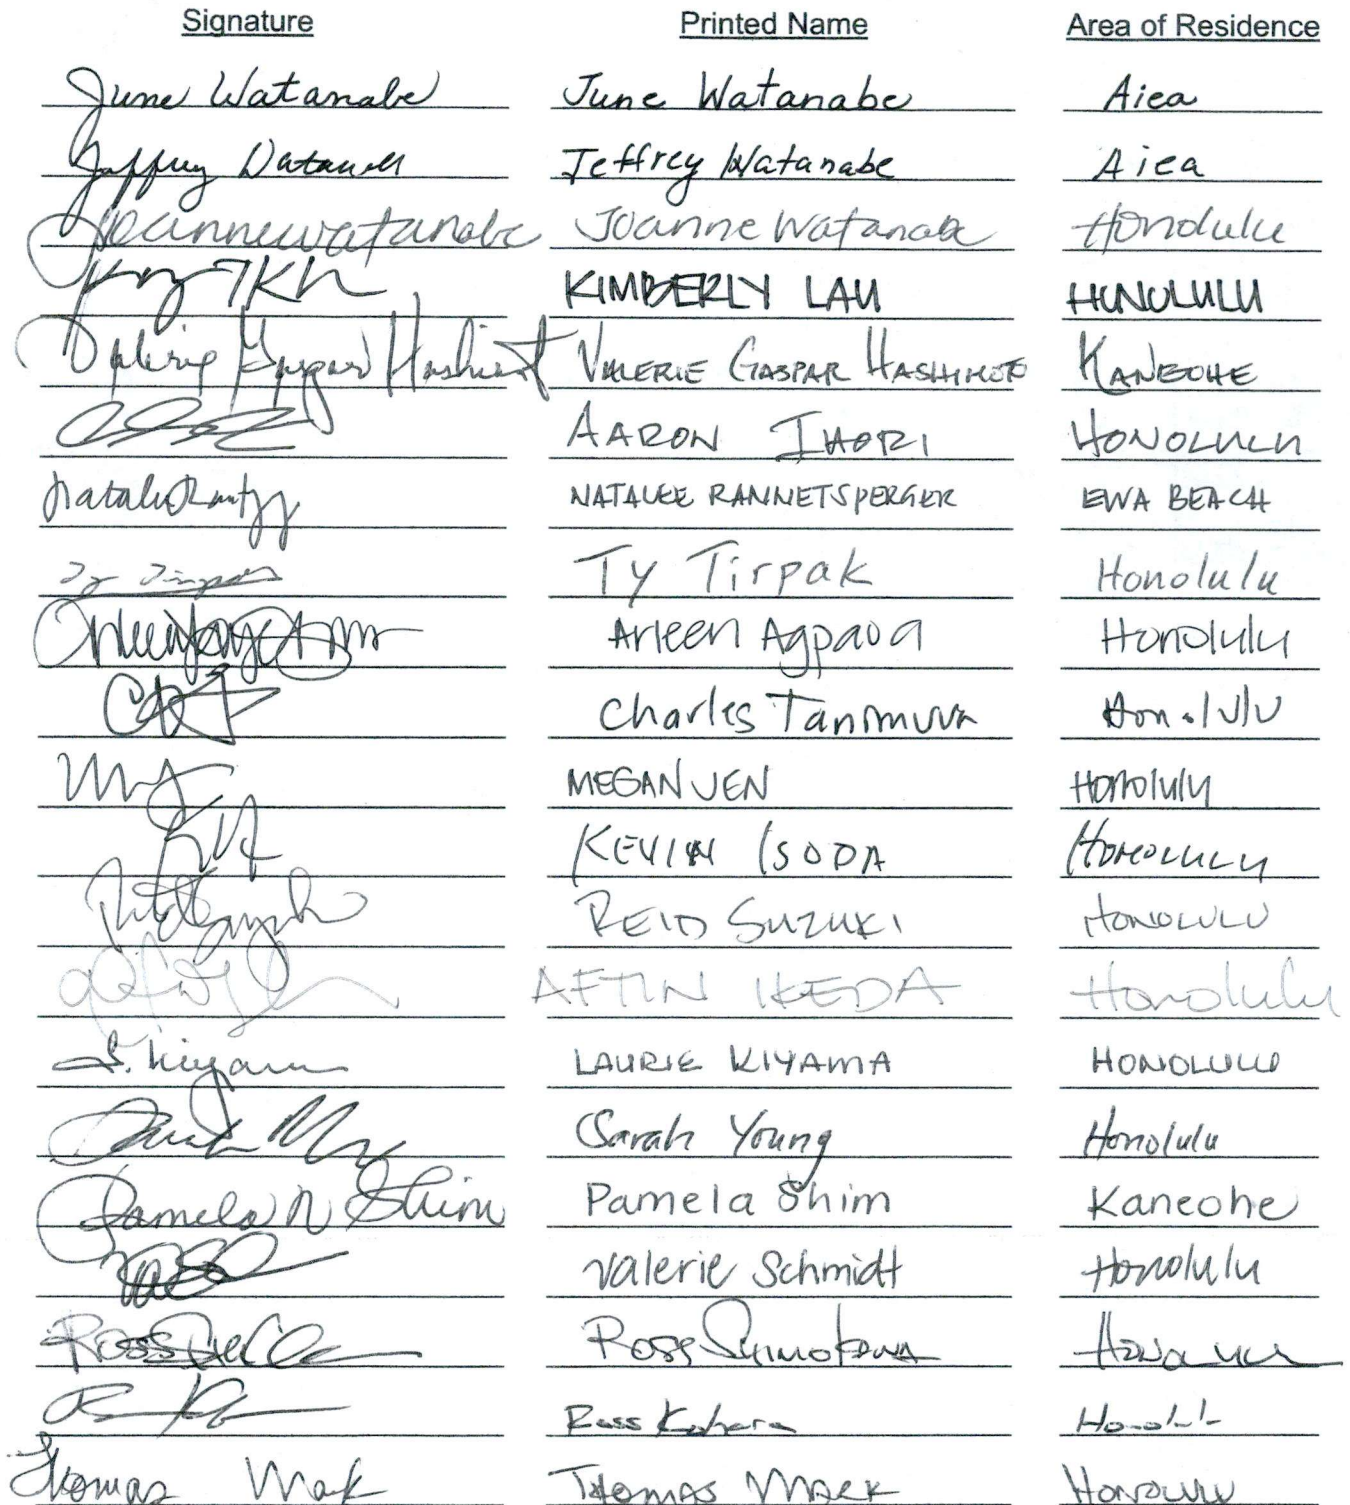 Signature Printed Name Area of Residence
June Watanabe June Watanabe Aiea
Jeffrey Watanabe Jeffrey Watanabe Aiea
Joanne Watanabe Joanne Watanabe Honolulu
KIMBERLY LAU HONOLULU
Valerie Gaspar Hashimoto VALERIE GASPAR HASHIMOTO KANEOHE
AARON IHORI HONOLULU
NATALEE RANNETSPERGER EWA BEACH
Ty Tirpak Ty Tirpak Honolulu
Arleen Agpaoa Honolulu
Charles Tanimura Honolulu
MEGAN JEN Honolulu
KEVIN ISODA HONOLULU
REID SUZUKI HONOLULU
AFTIN IKEDA Honolulu
L. Kiyama LAURIE KIYAMA HONOLULU
Sarah Young Honolulu
Pamela N Shim Pamela Shim Kaneohe
Valerie Schmidt Honolulu
Ross Ross Shimokawa Honolulu
Ross Honolulu
Thomas Mak THOMAS HONOLULU